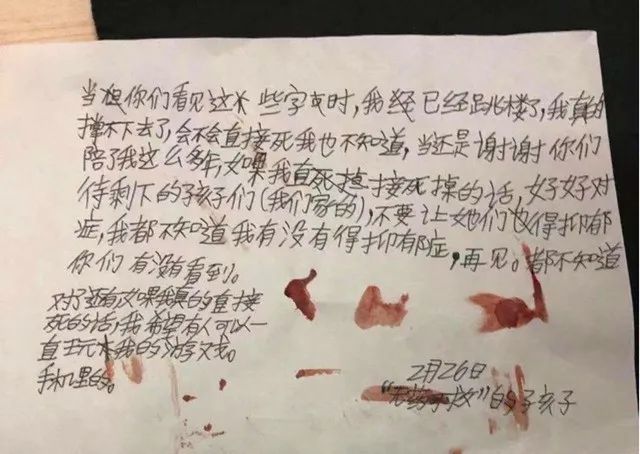 当你们看见这些字时,我经已经跳楼了,我真的
撑不下去了,会不会直接死我也不知道,当还是谢谢你们
陪了我这么多年,如果我直死掉接死掉的话,好好对
待剩下的孩子们(我们家的),不要让她们也得抑郁
症,我都不知道我有没有得抑郁症,再见。都不知道
你们有没有看到。
对了还有如果我真的直接
死的话,我希望有人可以一
直玩我的游戏。
手机里的。
2月26日
“无药可救”的孩子